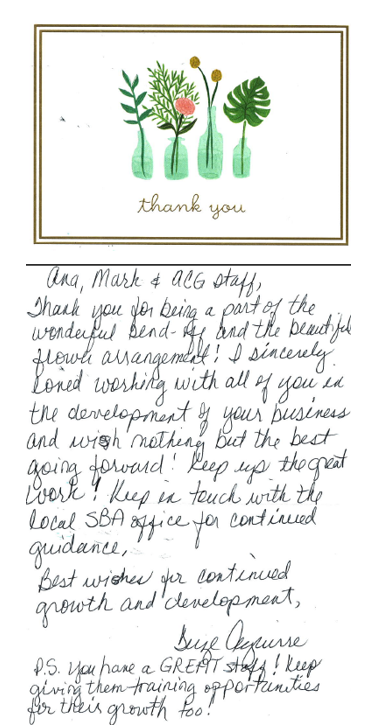 thank you
Ana, Mark & ACG Staff,
Thank you for being a part of the
wonderful send-off and the beautiful
flower arrangement! I sincerely
loved working with all of you in
the development of your business
and wish nothing but the best
going forward! Keep up the great
work! Keep in touch with the
local SBA office for continued
guidance,
Best wishes for continued
growth and development,
P.S. You have a GREAT staff! Keep
giving them training opportunities
for their growth too!